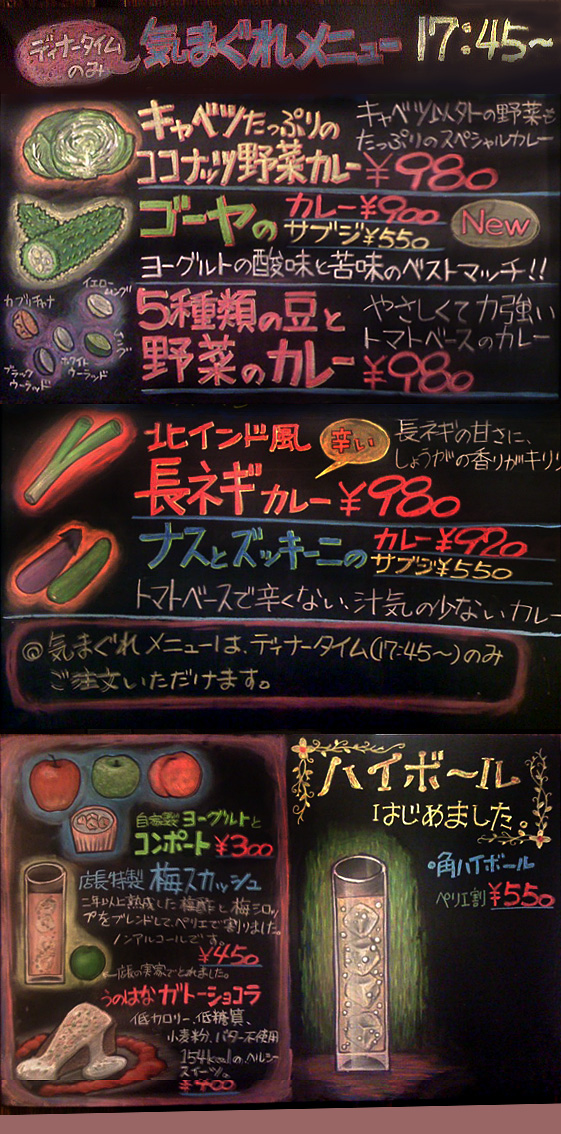 ディナータイム
のみ
気まぐれメニュー 17:45〜
キャベツたっぷりの
ココナッツ野菜カレー ¥980
キャベツ以外の野菜も
たっぷりのスペシャルカレー
ゴーヤの カレー¥900
サブジ¥550
New
ヨーグルトの酸味と苦味のベストマッチ!!
カブリチャナ
イエロームング
ムング
ホワイトウーラッド
ブラックウーラッド
5種類の豆と
野菜のカレー ¥980
やさしくて力強い
トマトベースのカレー
北インド風 辛い
長ネギカレー ¥980
長ネギの甘さに、
しょうがの香りがキリッ
ナスとズッキーニの カレー¥920
サブジ¥550
トマトベースで辛くない、汁気の少ないカレー
◎気まぐれメニューは、ディナータイム(17:45〜)のみ
ご注文いただけます。
自家製ヨーグルトと
コンポート ¥300
店長特製 梅スカッシュ
二年以上熟成した梅酢と梅シロッ
プをブレンドして、ペリエで割りました。
ノンアルコールです。
¥450
←店長の実家でとれました。
うのはなガトーショコラ
低カロリー、低糖質、
小麦粉、バター不使用
154kcalの、ヘルシー
スイーツ。
¥400
ハイボール
はじめました。
・角ハイボール
ペリエ割 ¥550